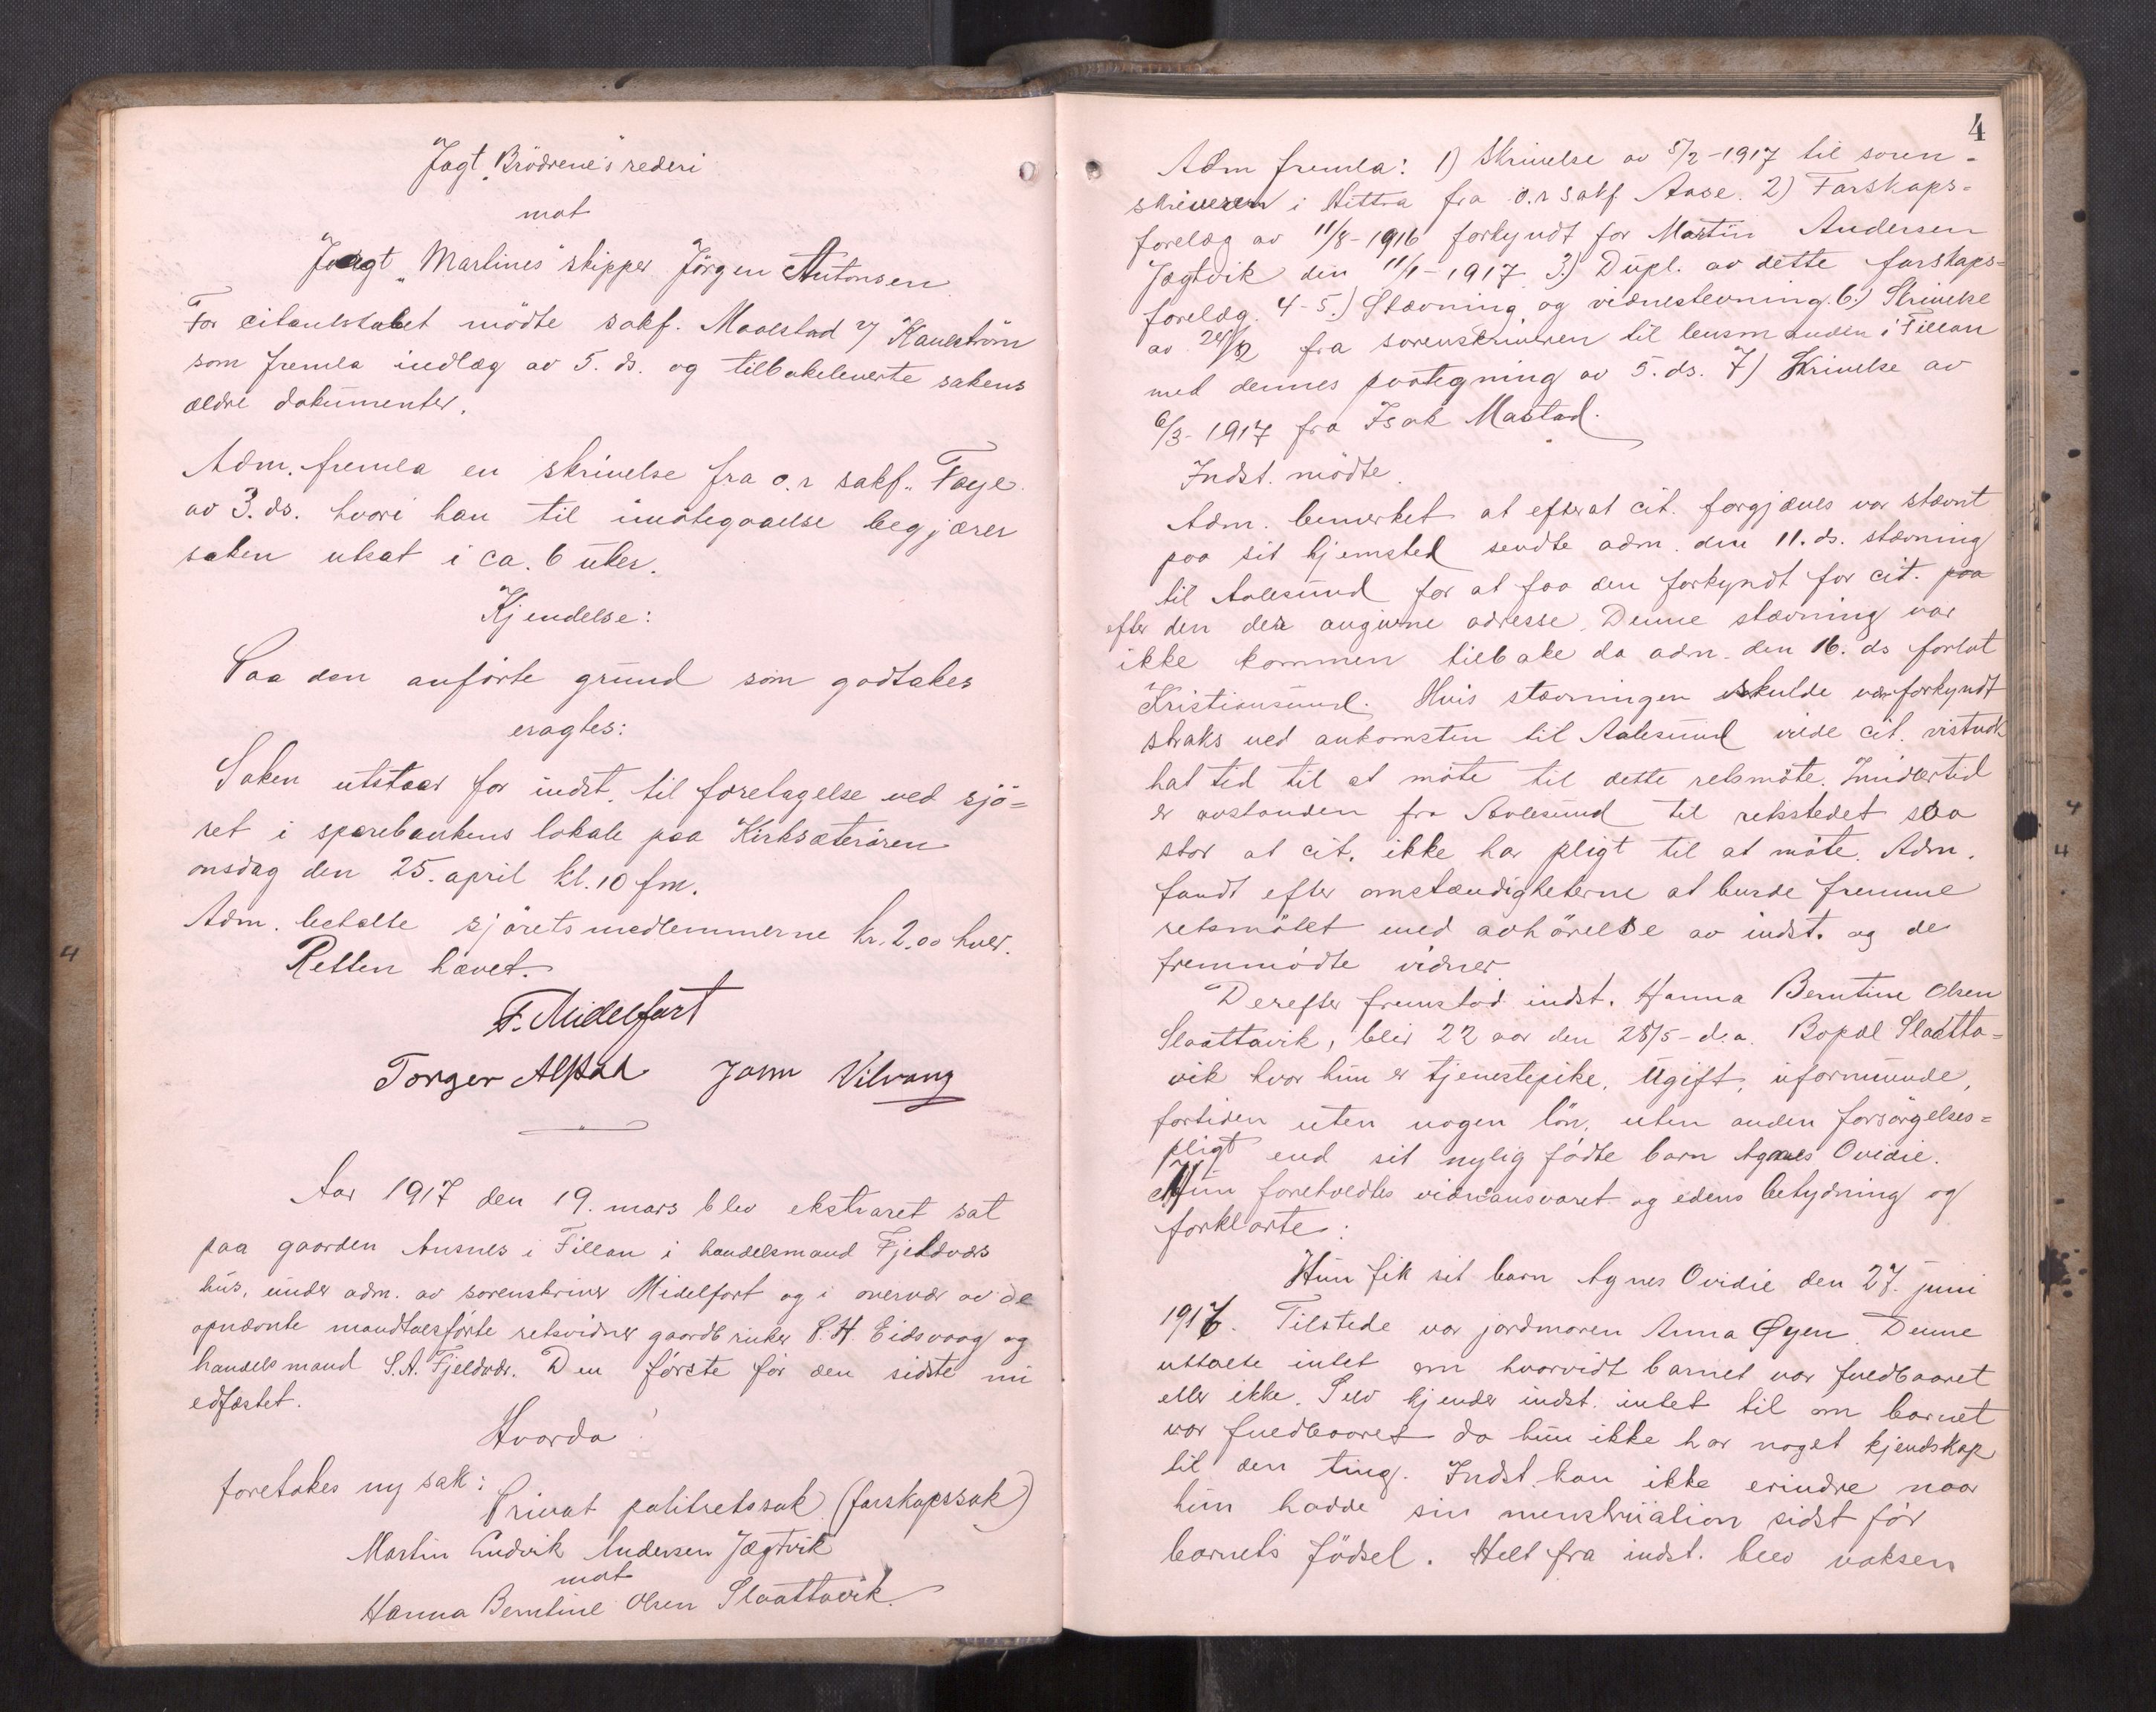 Jagt „Brödrene"s rederi
mot
Jagt „Martines" skipper Jörgen Antonsen
For citantskabet mödte sakf. Maalstad v/ Kaulström
som fremla indlæg av 5. ds. og tilbakeleverte sakens
ældre dokumenter.
Adm. fremla en skrivelse fra o.r sakf. Faye
av 3. ds. hvori han til imötegaaelse begjærer
saken utsat i ca. 6 uker.
Kjendelse:
Paa den anförte grund som godtakes
eragtes:
Saken utstaar for indst. til foretagelse ved sjö=
ret i sparebankens lokale paa Kirksæterören
onsdag den 25. april kl. 10 fm.
Adm. betalte sjöretsmedlemmerne kr. 2.00 hver.
Retten hævet.
F. Midelfart
Torger Alstad John Vilvang
Aar 1917 den 19. mars blev ekstraret sat
paa gaarden Ansnes i Fillan i handelsmand Fjeldværs
hus, under adm. av sorenskriver Midelfort og i overvær av de
opnævnte mandtalsförte retsvidner gaardbruker P. H. Eidsvaag og
handelsmand S. A. Fjeldvær. Den förste för den sidste nu
edfæstet.
Hvorda
foretakes ny sak:
Privat politiretssak (farskapssak)
Martin Ludvik Andersen Jægtvik
mot
Hanna Berntine Olsen Slaattavik.
4
Adm fremla: 1) Skrivelse av 5/2-1917 til soren=
skriveren i Hittra fra o.r sakf Aase. 2) Farskaps=
forelæg av 11/8-1916 forkyndt for Martin Andersen
Jægtvik den 11/1-1917. 3.) Dupl. av dette farskaps=
forelæg. 4-5.) Stævning og vidnestevning. 6.) Skrivelse
av fra sorenskriveren til lensmanden i Fillan
med dennes paategning av 5. ds. 7) Skrivelse av
6/3-1917 fra Isak Mastad.
Indst. mödte.
Adm. bemerket at efterat cit. forgjæves var stævnt
paa sit hjemsted sendte adm. den 11. ds. stævning
til Aalesund for at faa den forkyndt for cit. paa
efter den der angivne adresse. Denne stævning var
ikke kommen tilbake da adm. den 16. ds forlot
Kristiansund. Hvis stævningen skulde være forkyndt
straks ved ankomsten til Aalesund vilde cit. vistnok
hat tid til at möte til dette retsmöte. Imidlertid
er avstanden fra Aalesund til retsstedet saa
stor at cit. ikke har pligt til at möte. Adm.
fandt efter omstændigheterne at burde fremme
retsmötet med avhörelse av indst. og de
fremmödte vidner.
Derefter fremstod indst. Hanna Berntine Olsen
Slaattavik, blir 22 aar den 28/5- d.a. Bopæl Slaatta=
vik hvor hun er tjenestepike. Ugift, uformuende,
fortiden uten nogen lön, uten anden forsörgelses=
pligt end sit nylig födte barn Agnes Ovidie.
Hun foreholdtes vidneansvaret og edens betydning og
forklarte:
Hun fik sit barn Agnes Ovidie den 27. juni
1916. Tilstede var jordmoren Anna Øyen. Denne
uttalte intet om hvorvidt barnet var fuldbaaret
eller ikke. Selv kjender indst. intet til om barnet
var fuldbaaret da hun ikke har noget kjendskap
til den ting. Indst. kan ikke erindre naar
hun hadde sin menstruation sidst för
barnets födsel. Helt fra indst. blev voksen